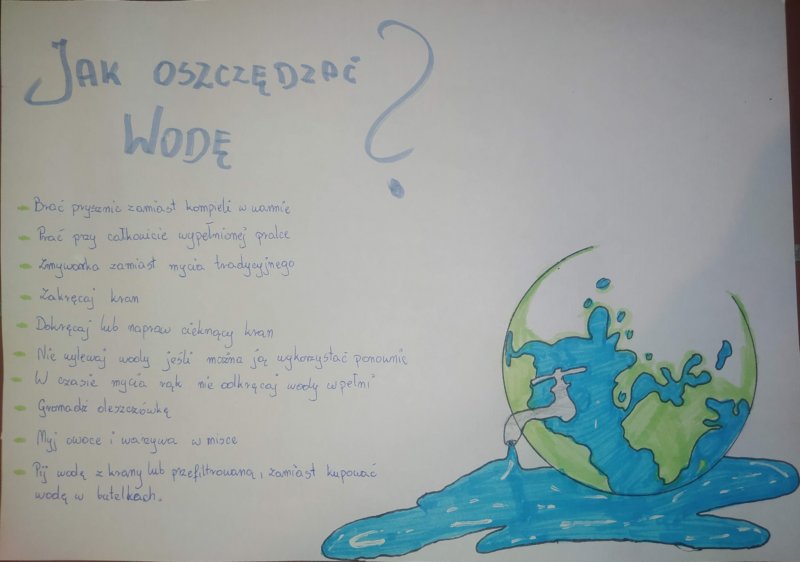 JAK OSZCZĘDZAĆ ?
WODĘ
Brać prysznic zamiast kompieli w wannie
Prać przy całkowicie wypełnionej pralce
Zmywarka zamiast mycia tradycyjnego
Zakręcaj kran
Dokręcaj lub napraw cieknący kran
Nie wylewaj wody jeśli można ją wykorzystać ponownie
W czasie mycia rąk nie odkręcaj wody w pełni
Gromadź deszczówkę
Myj owoce i warzywa w misce
Pij wodę z kranu lub przefiltrowaną, zamiast kupować
wodę w butelkach.